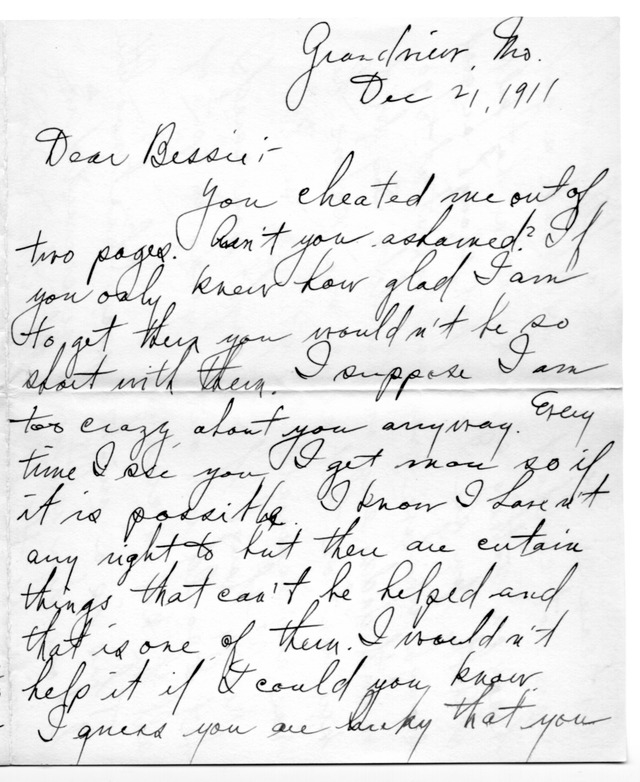 Grandview, Mo.
Dec 21, 1911
Dear Bessie:-
You cheated me out of
two pages. Ain't you ashamed? If
you only knew how glad I am
to get them you wouldn't be so
short with them. I suppose I am
too crazy about you anyway. Every
time I see you I get more so if
it is possible. I know I haven't
any right to but there are certain
things that can't be helped and
that is one of them. I wouldn't
help it if I could you know.
I guess you are lucky that you